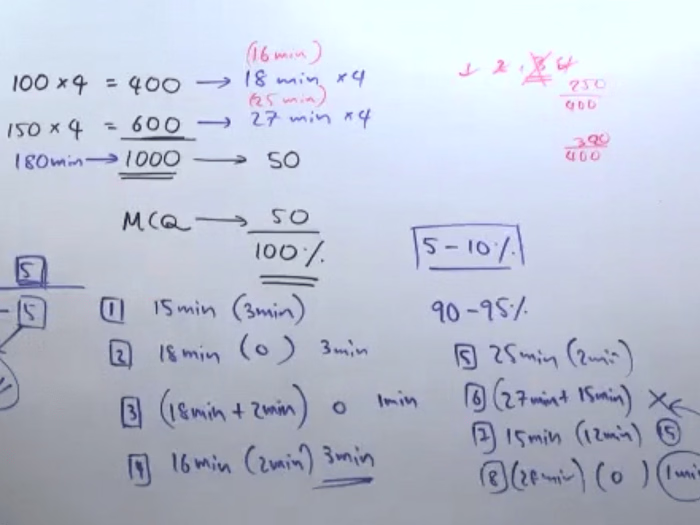 (16 min)
100 × 4 = 400 → 18 min × 4
(25 min)
150 × 4 = 600 → 27 min × 4
180min → 1000 → 50
MCQ → 50
100%
1 2 3 4
250
400
390
400
5 – 10%
90 – 95%
5
– 5
1 15min (3min)
2 18min (0) 3min
3 (18min + 2min) 0 1min
4 16min (2min) 3min
5 25min (2min)
6 (27min + 15min) ×
7 15min (12min) 15
8 (0) 1min